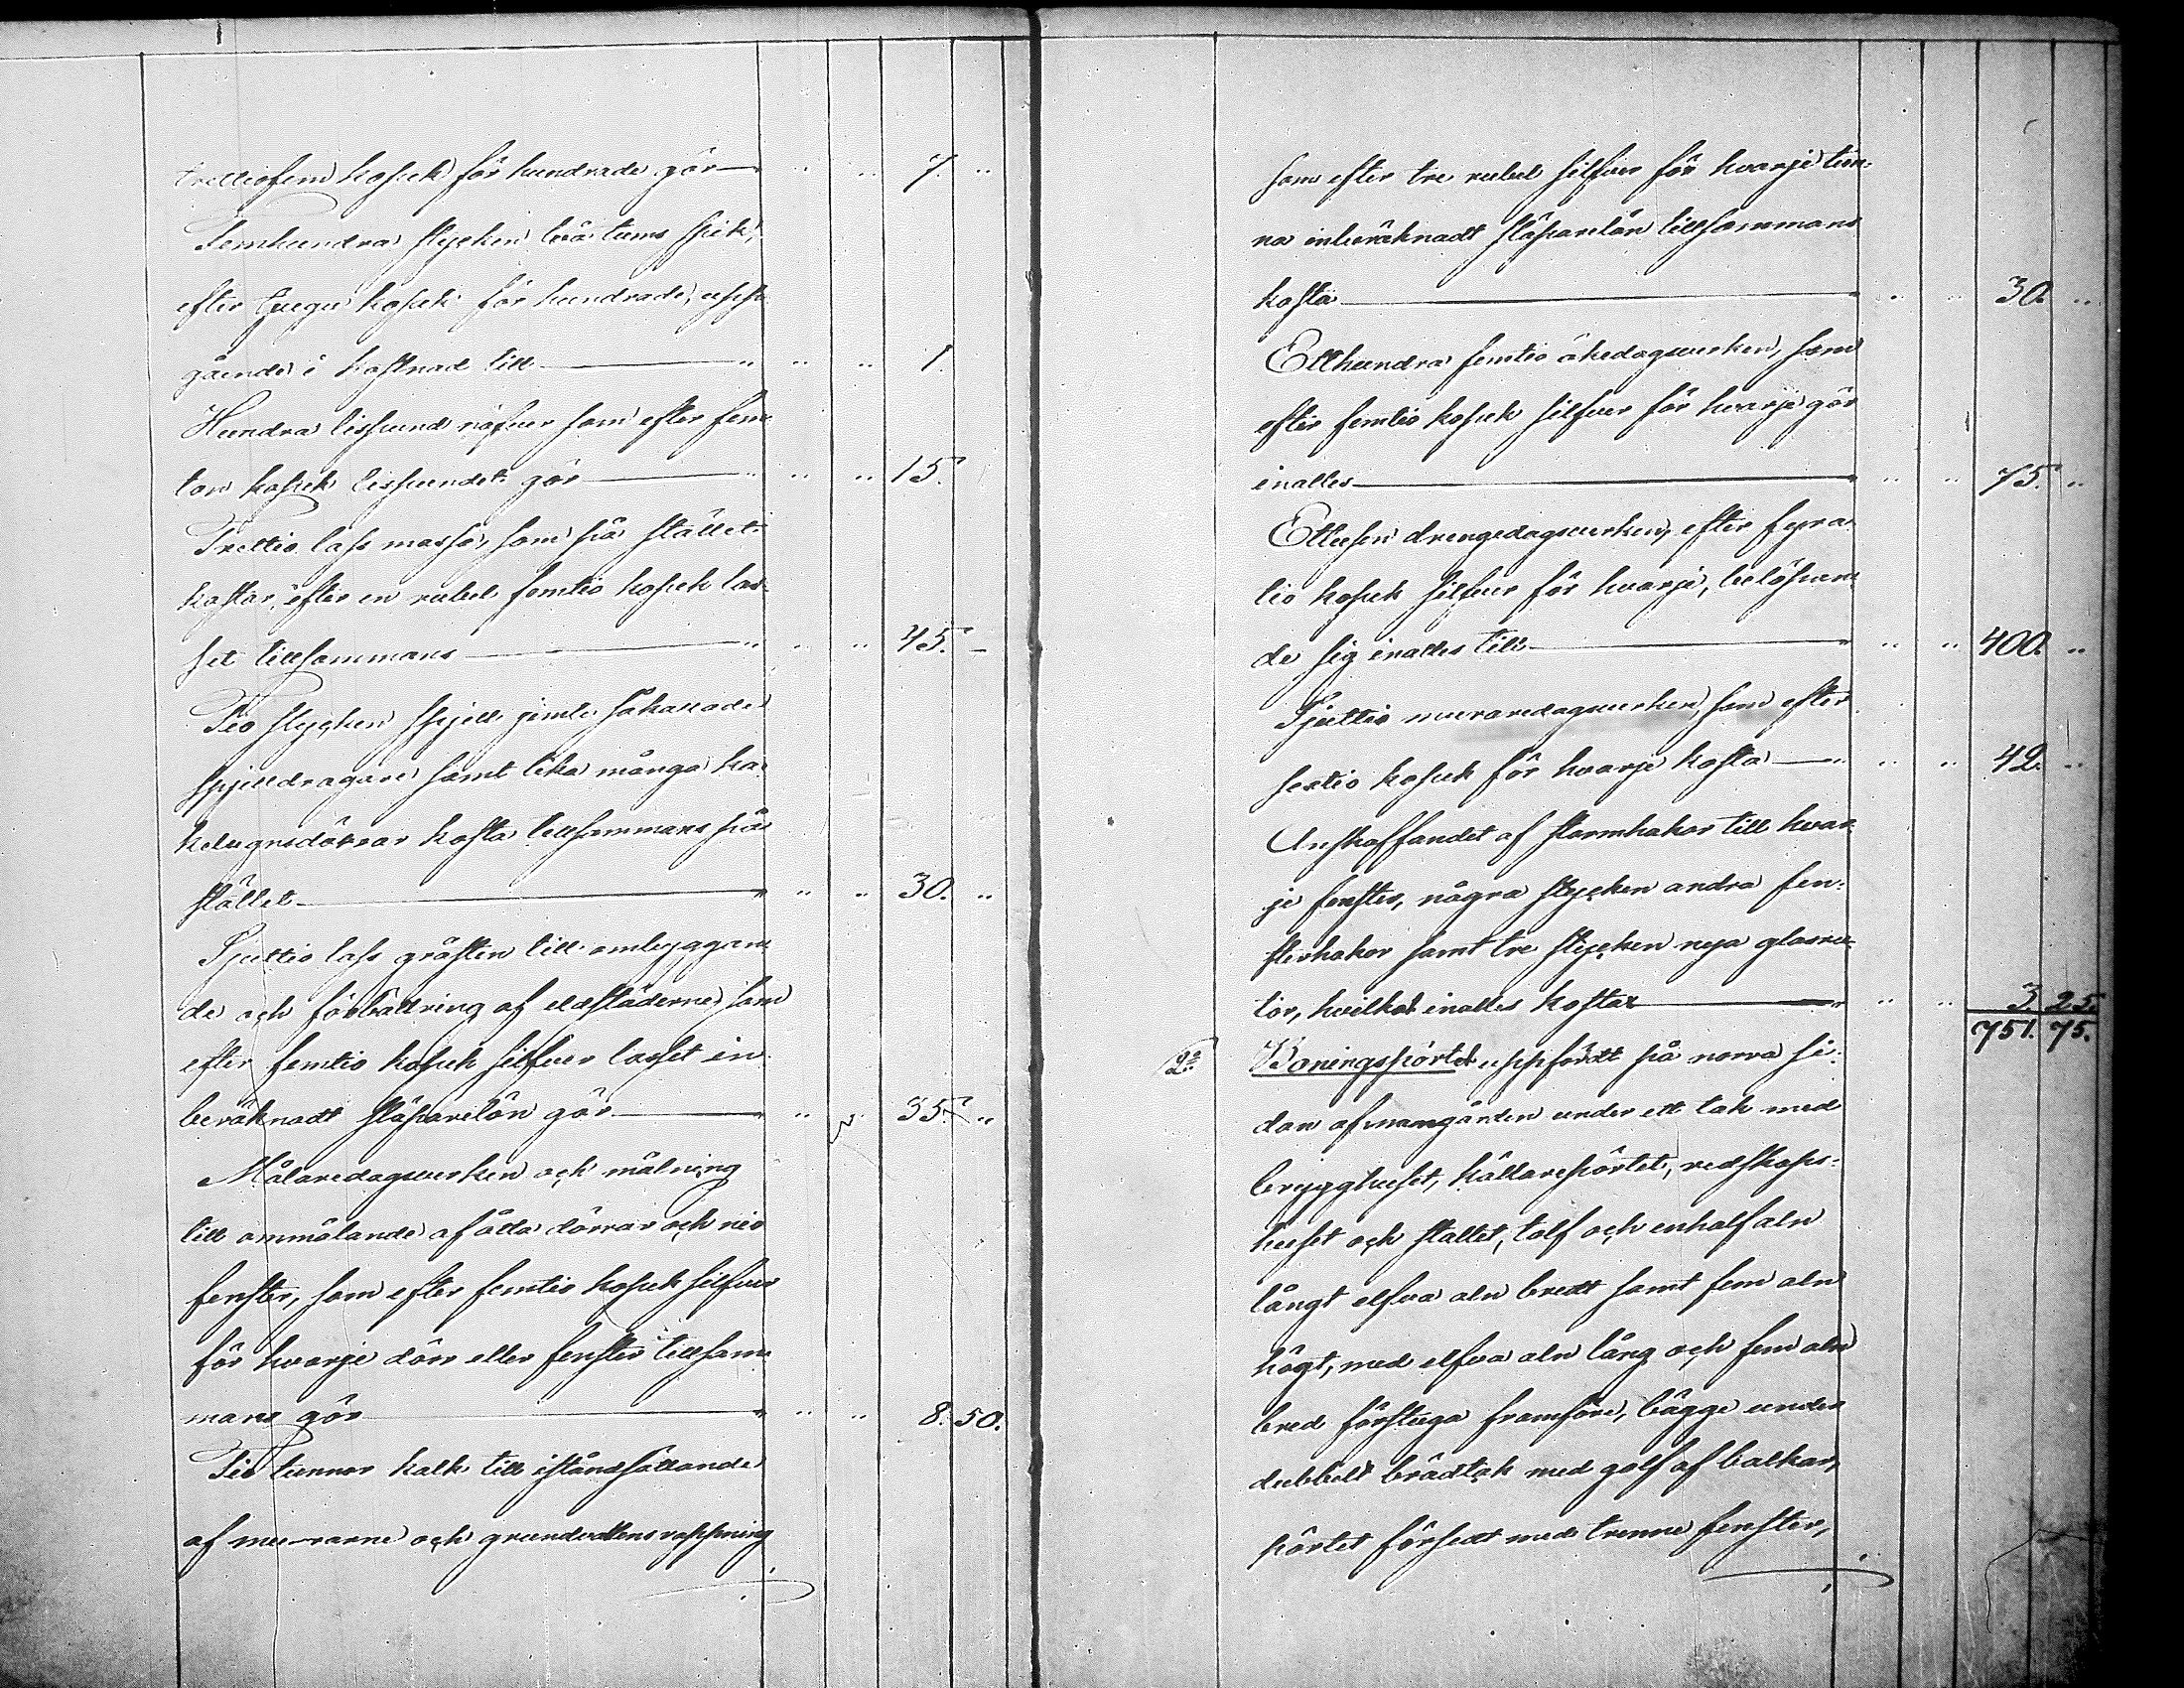 trettiofem kopek för hundrade gör — " " 7. "
Femhundra stycken två tums spik,
efter tjugu kopek för hundrade, upp-
gående i kostnad till — " " " 1.
Hundra lispund näfver som efter fem-
ton kopek lispundet gör — " " " 15.
Trettio lass mossa, som på stället
kostar, efter en rubel femtio kopek las-
set tillsammans — " " " 45. –
Tio stycken spjell jemte såkallade
spjelldragare samt lika många ka-
kelugnsdörrar kosta tillsammans på
stället — " " " 30. "
Sjuttio lass gråsten till ombyggan-
de och förbättring af eldstäderne som
efter femtio kopek silfver lasset in-
beräknadt släparelön gör — " " " 35. "
Målaredagsverken och målning
till ommålande af åtta dörrar och nio
fenster, som efter femtio kopek silfver
för hvarje dörr eller fenster tillsam-
mans gör — " " " 8. 50.
Tio tunnor kalk till iståndsättande
af murarne och grundvallens rappning
som efter tre rubel silfver för hvarje tun-
na inberäknadt släparelön tillsammans
kosta — " " " 30. "
Etthundra femtio åkedagsverken, som
efter femtio kopek silfver för hvarje gör
inalles — " " " 75. "
Ettusen drengedagsverken, efter fyra-
tio kopek silfver för hvarje, belöpan-
de sig inalles till — " " " 400. "
Sjuttio muraredagsverken, som efter
sextio kopek för hvarje kosta — " " " 42. "
Anskaffandet af stormhakar till hvar-
je fenster, några stycken andra fen-
sterhakar samt tre stycken nya glasru-
tor, hvilket inalles kostar — " " " 3. 25.
751. 75.
2:o Boningspörtet uppfördt på norra si-
dan af mangården under ett tak med
brygghuset, källarepörtet, redskaps-
huset och stallet, tolf och en half aln
långt elfva aln bredt samt fem aln
högt, med elfva aln lång och fem aln
bred förstuga framföre, bägge under
dubbelt brädtak med golf af balkar,
pörtet försedt med trenne fenster,